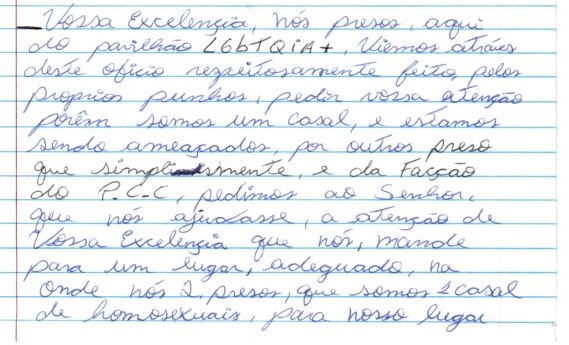 Vossa Excelençia, nós presos, aqui
do pavilhão LGbTQiA+, Viemos atráves
deste oficio respeitosamente feito, pelos
proprios punhos, pedir vossa atenção
porêm somos um casal, e estamos
sendo ameaçados, por outros preso
que simplismente, e da Facção
do P.C.C, pedimos ao Senhor,
que nós ajudasse, a atenção de
Vossa Excelençia que nós, mande
para um lugar, adeguado, na
onde nós 2, presos, que somos 1 casal
de homosexuais, para nosso lugar